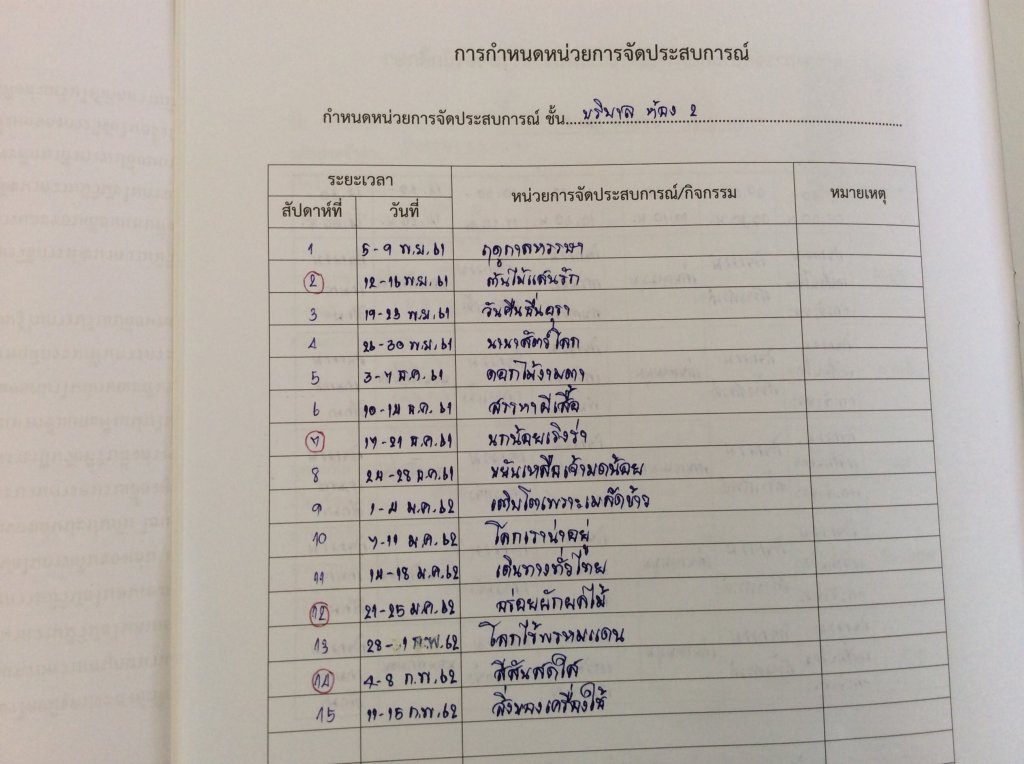 การกำหนดหน่วยการจัดประสบการณ์
กำหนดหน่วยการจัดประสบการณ์ ชั้น บริบาล ห้อง 2
ระยะเวลา หน่วยการจัดประสบการณ์/กิจกรรม หมายเหตุ
สัปดาห์ที่ วันที่
1 5-9 พ.ย. 61 ฤดูกาลหรรษา
2 12-16 พ.ย. 61 ต้นไม้แสนรัก
3 19-23 พ.ย. 61 วันคืนชื่นอุรา
4 26-30 พ.ย. 61 นานาสัตว์โลก
5 3-7 ธ.ค. 61 ดอกไม้งามตา
6 10-14 ธ.ค. 61 สรรหาผีเสื้อ
7 17-21 ธ.ค. 61 นกน้อยเริงร่า
8 24-28 ธ.ค. 61 ขยันเหลือเจ้ามดน้อย
9 1-4 ม.ค. 62 เติบโตเพราะเมล็ดข้าว
10 7-11 ม.ค. 62 โลกเราน่าอยู่
11 14-18 ม.ค. 62 เดินทางทั่วไทย
12 21-25 ม.ค. 62 อร่อยผักผลไม้
13 28-1 ก.พ. 62 โลกไร้พรหมแดน
14 4-8 ก.พ. 62 สีสันสดใส
15 11-15 ก.พ. 62 สิ่งของเครื่องใช้